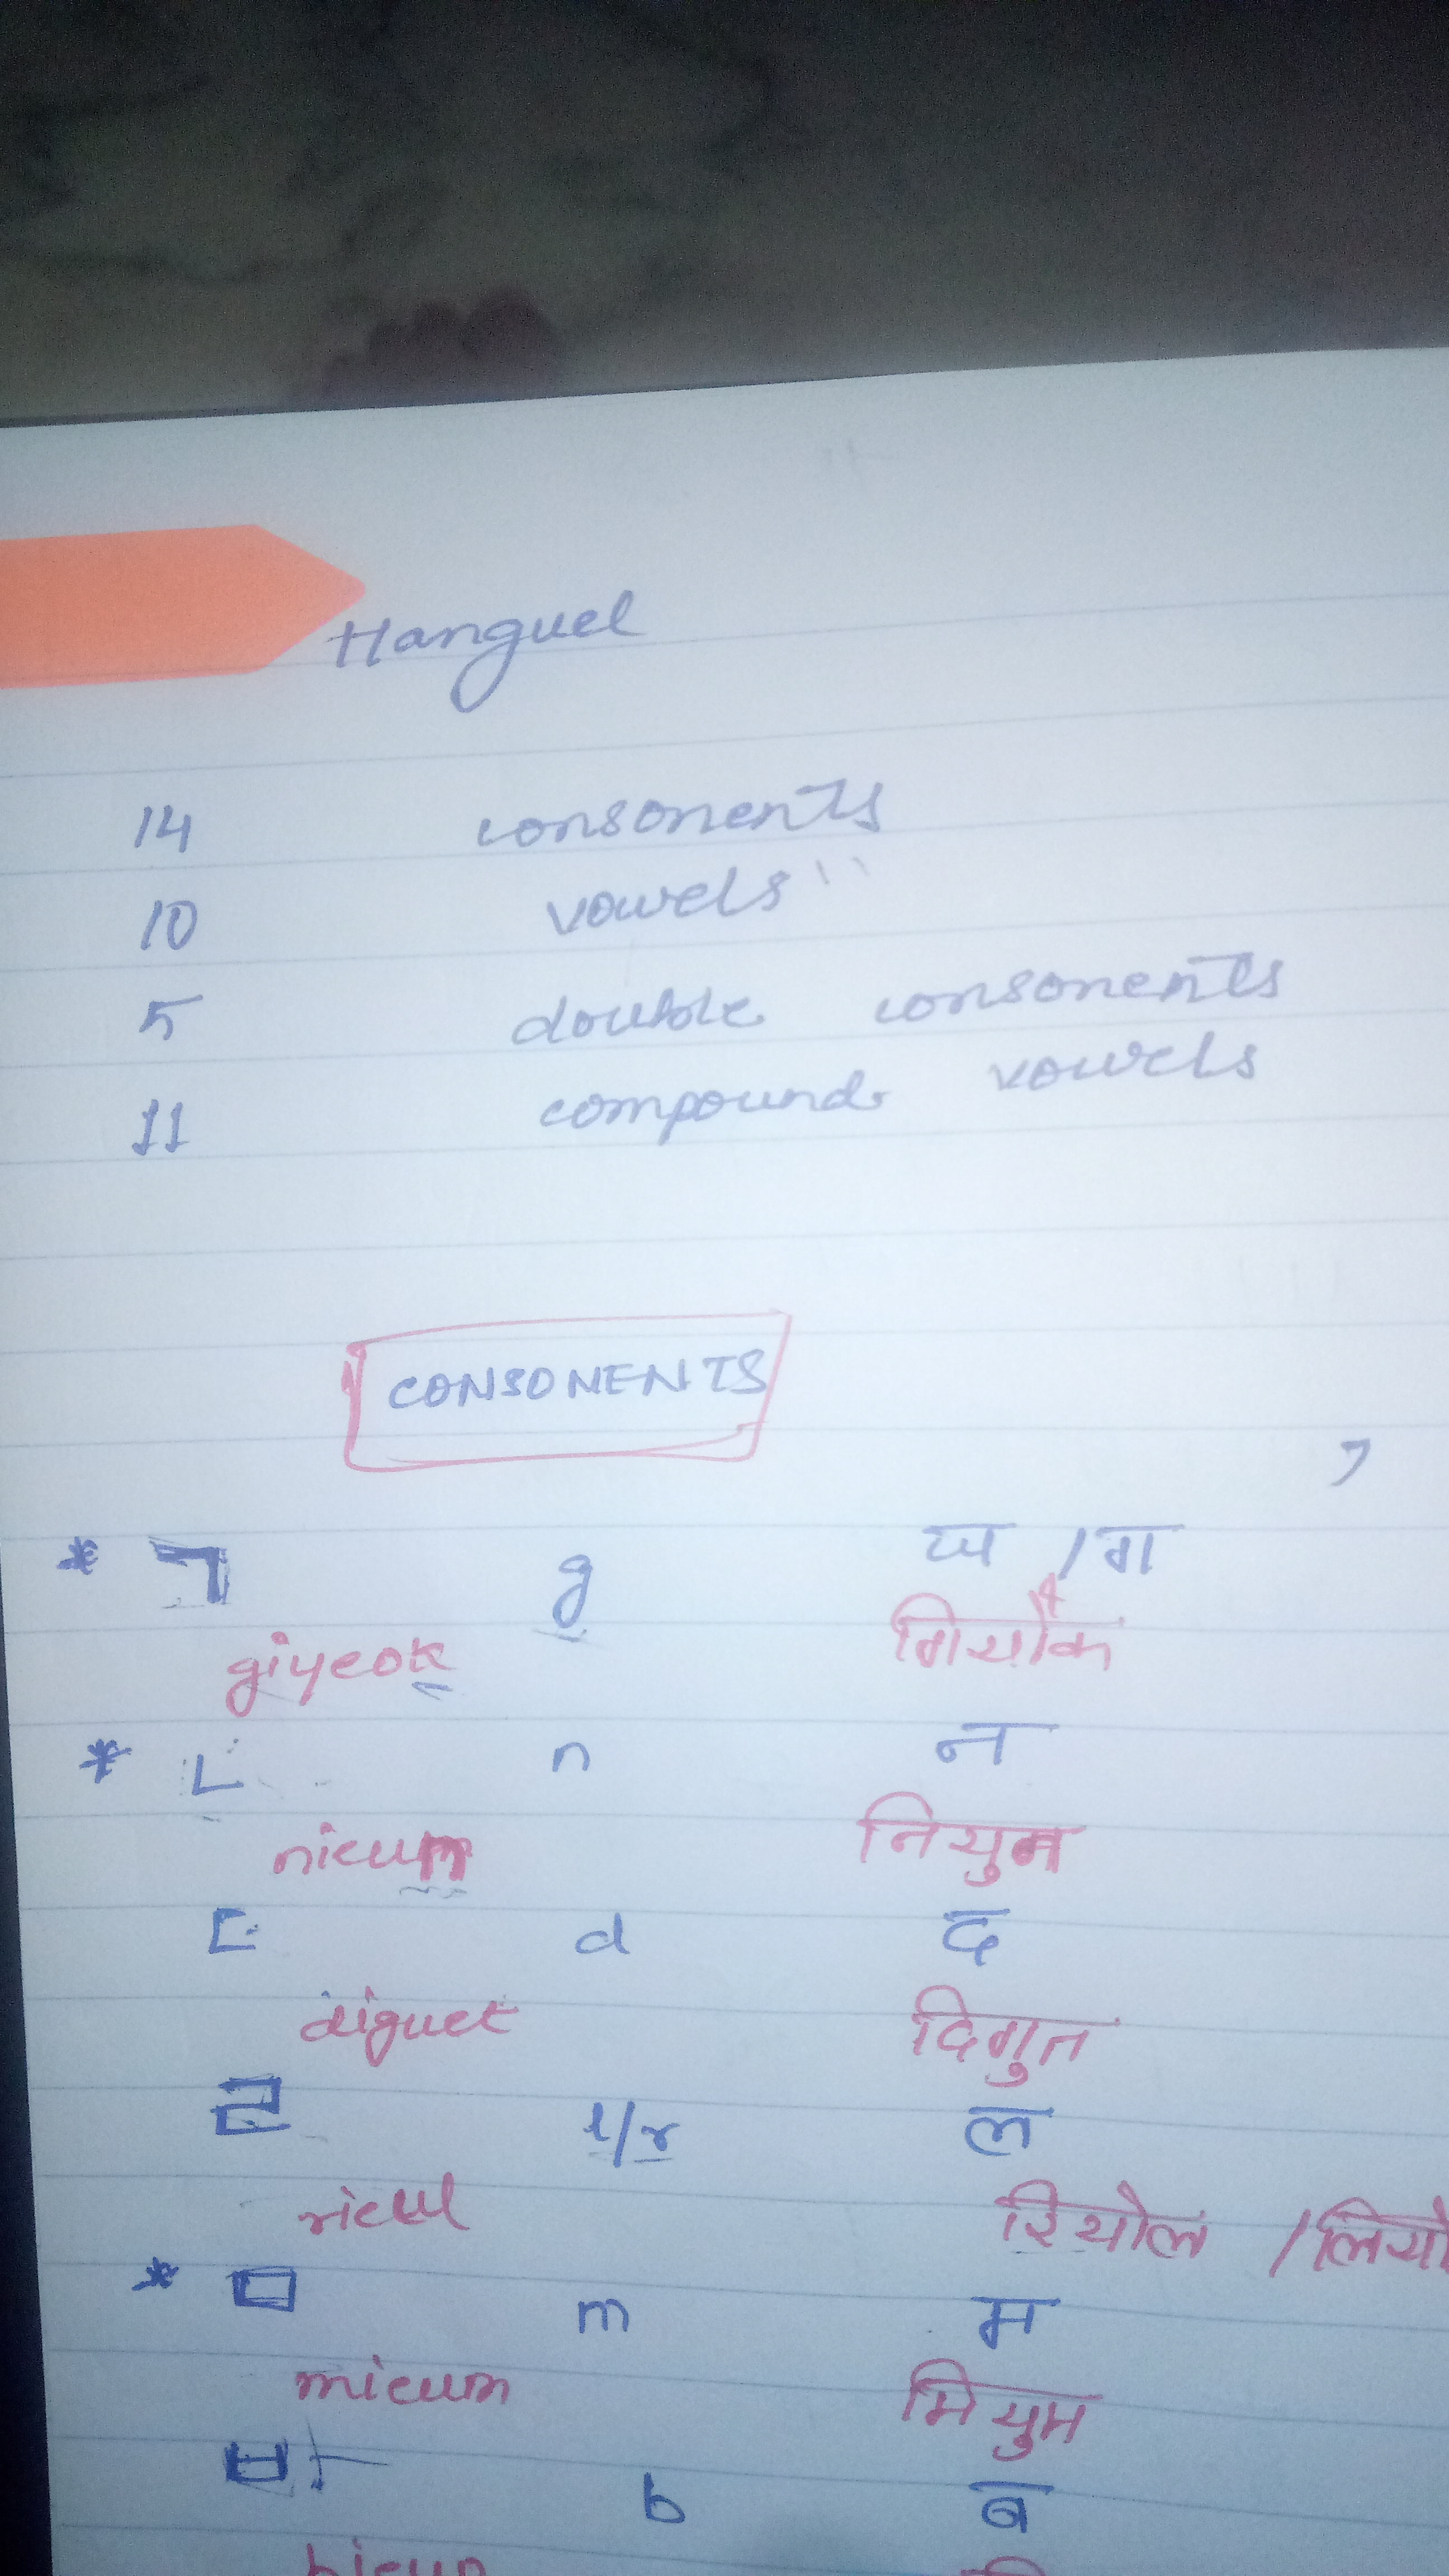 Hanguel
14 consonents
10 vowels "
5 double consonents
11 compound vowels
CONSONENTS
* ㄱ g / ग
giyeok गियौक
* ㄴ n न
nieun नियुन
ㄷ d द
diguet दिगुत
ㄹ l/r ल
rieul रियोल /लियो
* ㅁ m म
mieum मियुम
ㅂ b ब